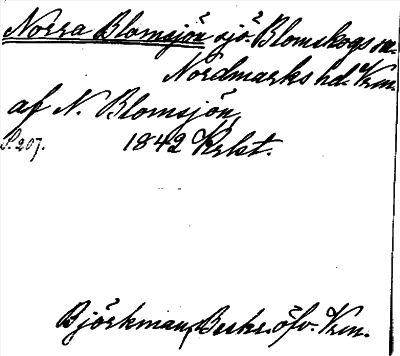 Norra Blomsjön sjö. Blomskogs sn.
Nordmarks hd. Vrm.
af N. Blomsjön,
S. 207. 1842 Krkt.
Björkman, Beskr. öfv. Vrm.